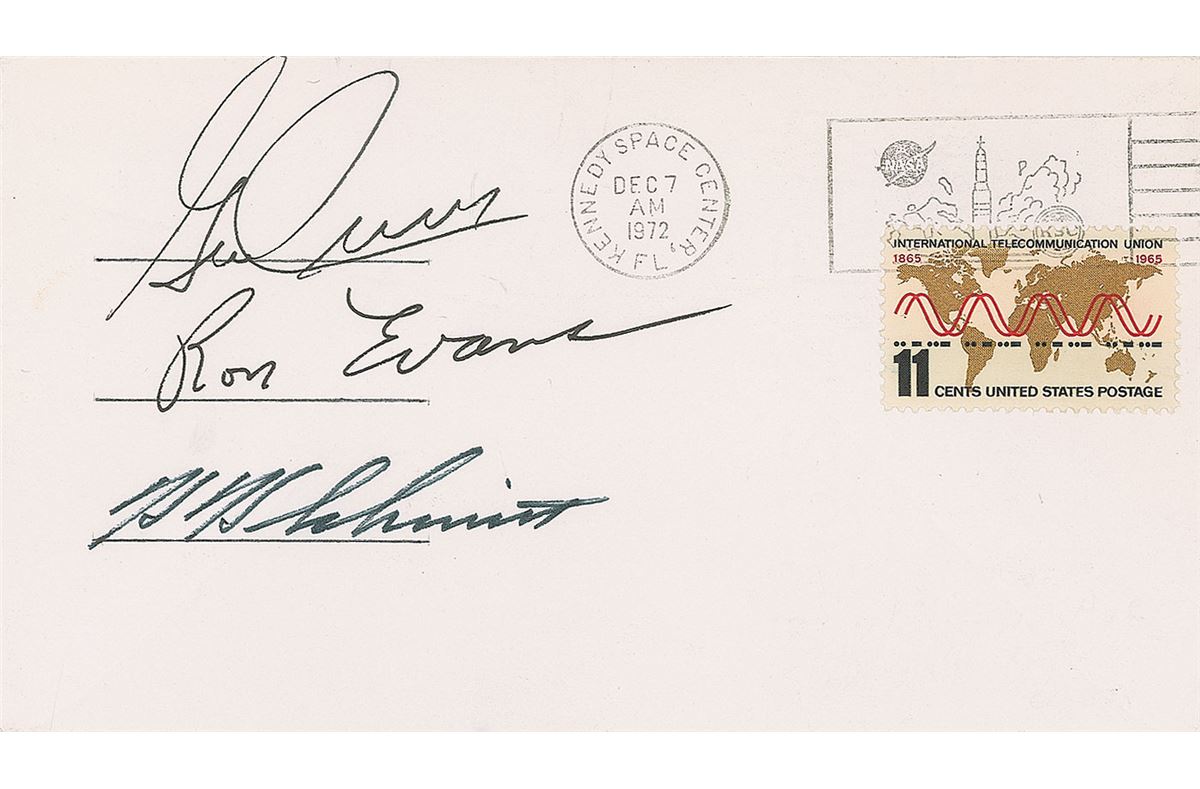 Ron Evans
H H Schmitt
KENNEDY SPACE CENTER, FL
DEC 7
AM
1972
NASA
KSC
INTERNATIONAL TELECOMMUNICATION UNION
1865 1965
11 CENTS UNITED STATES POSTAGE